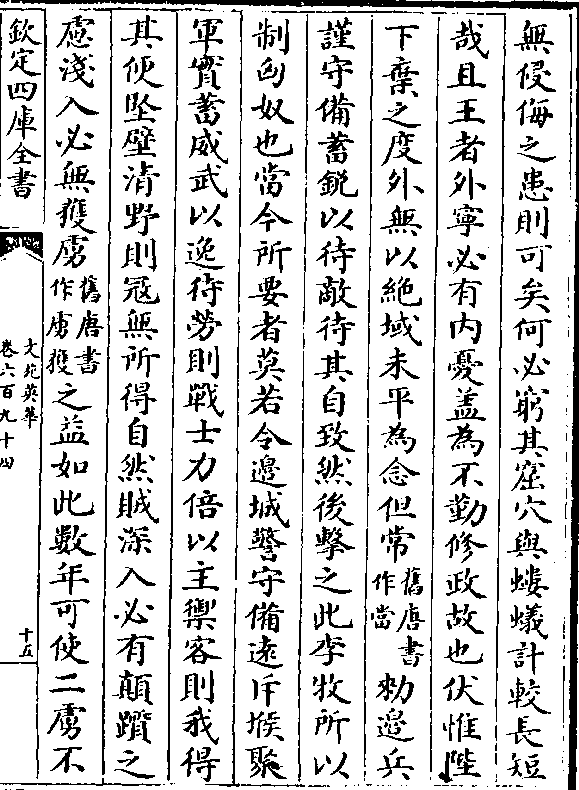 無侵侮之患則可矣何必窮其窟穴與螻蟻計較長短
哉且王者外寧必有内憂葢為不勤修政故也伏惟陛
下棄之度外無以絶域未平為念但常舊唐書作當勑邉兵
謹守備蓄銳以待敵待其自致然後擊之此李牧所以
制匈奴也當今所要者莫若令邉城警守備逺斥堠聚
軍實蓄威武以逸待勞則戰士力倍以主禦客則我得
其便堅壁清野則冦無所得自然賊深入必有顛躓之
慮淺入必無獲虜舊唐書作虜獲之益如此數年可使二虜不
欽定四庫全書
文苑英華
卷六百九十四
十五